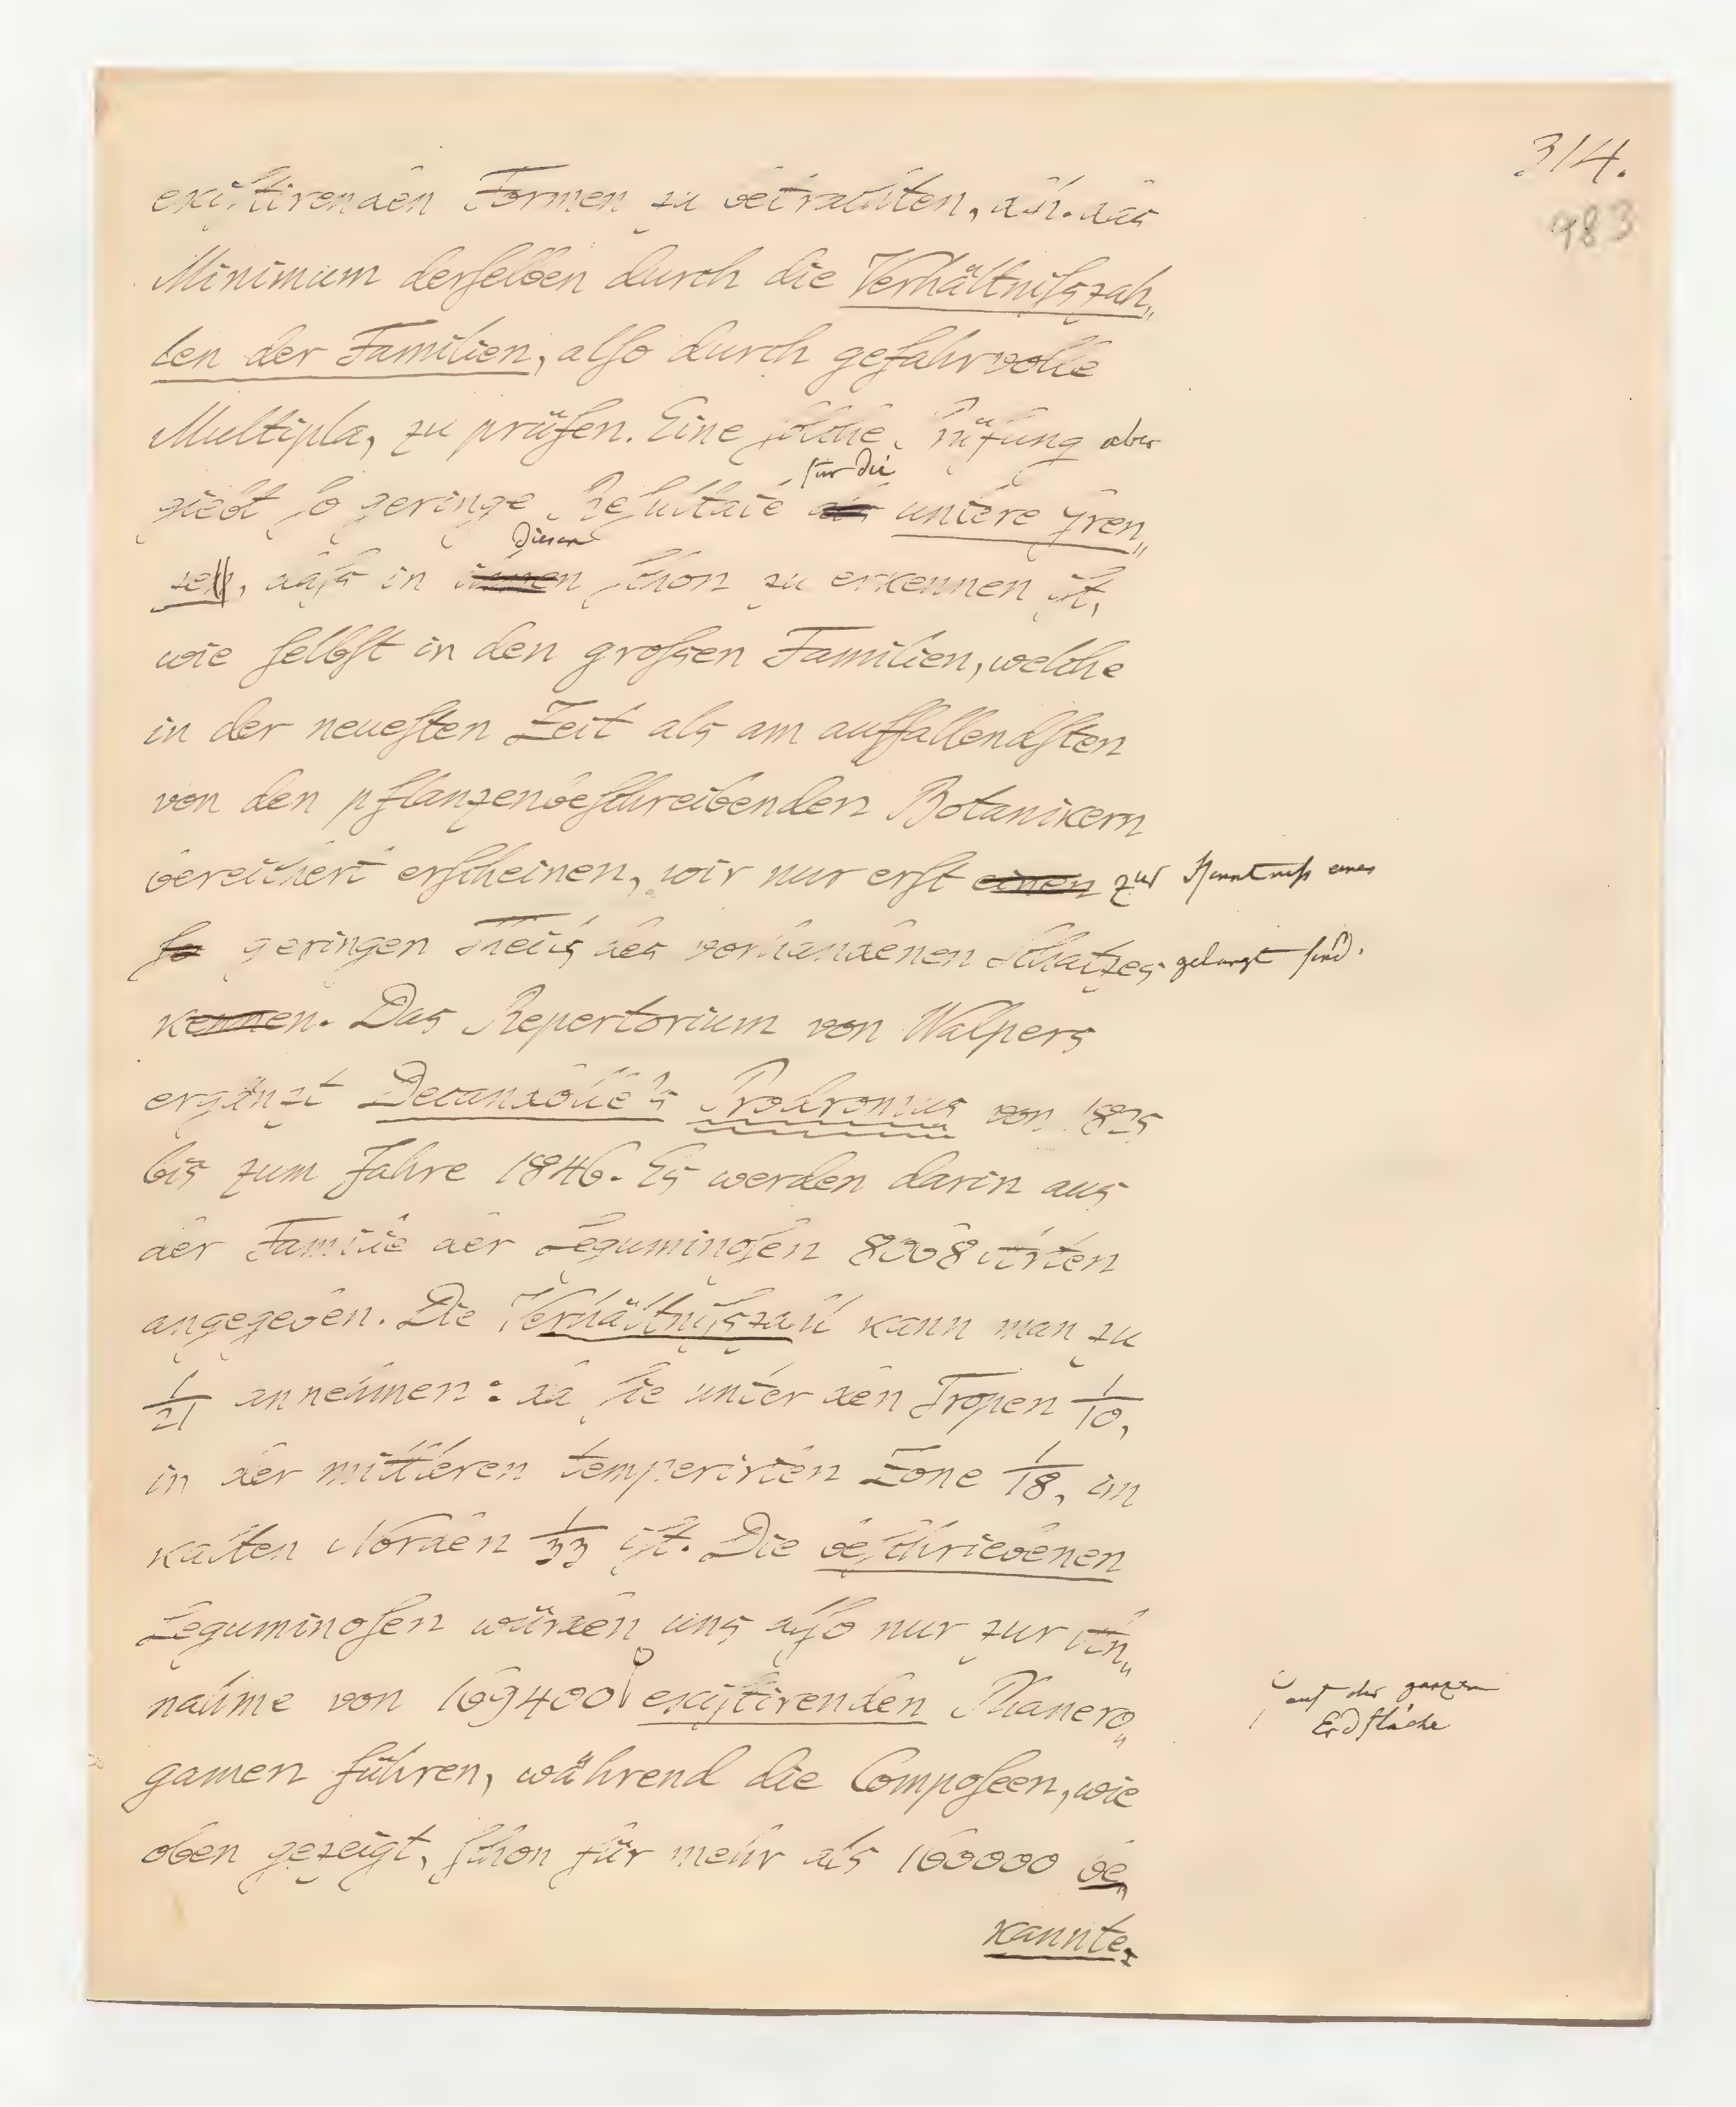 314.
983
existirenden Formen zu betrachten, d. h. das
Minimum derselben durch die Verhältnißzah„
len der Familien, also durch gefahrvolle
Multipla, zu prüfen. Eine solche Prüfung aber
für die
giebt so geringe Resultate als untere Gren„
diesen
zen, daß in ihnen schon zu erkennen ist,
wie selbst in den großen Familien, welche
in der neuesten Zeit als am auffallendsten
von den pflanzenbeschreibenden Botanikern
bereichert erscheinen, wir nur erst einen zur Kenntniß eines
so geringen Theils des vorhandenen Schatzes gelangt sind.
kennen. Das Repertorium von Walpers
ergänzt Decandolle's Prodromus von 1825
bis zum Jahre 1846. Es werden darin aus
der Familie der Leguminosen 8068 Arten
angegeben. Die Verhältnißzahl kann man zu
1/21 annehmen: da sie unter den Tropen 1/10,
in der mittleren temperirten Zone 1/18, im
kalten Norden 1/33 ist. Die beschriebenen
Leguminosen würden uns also nur zur An„
nahme von 169400 existirenden Phanero„
auf der ganzen
Erdfläche
gamen führen, während die Composeen, wie
oben gezeigt, schon für mehr als 160000 be„
kannte,